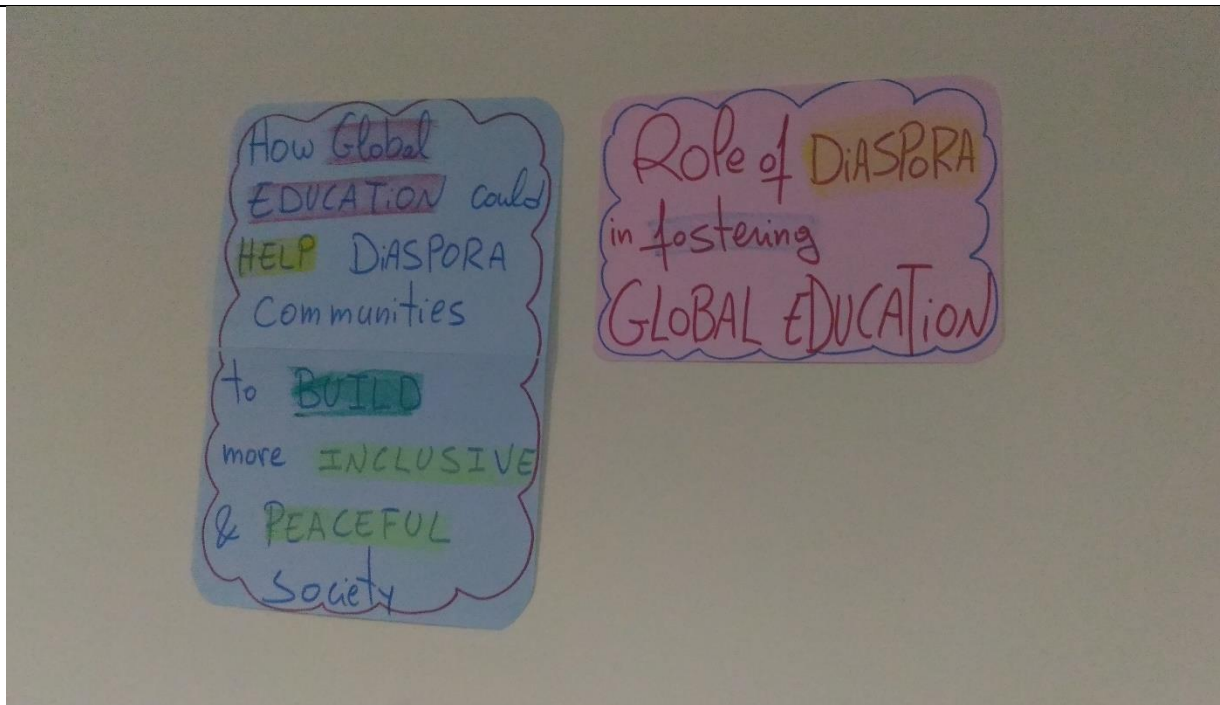 How Global
EDUCATION could
HELP DiASPORA
Communities
to BUILD
more INCLUSIVE
& PEACEFUL
Society
Role of DiASPORA
in fostering
GLOBAL EDUCATiON